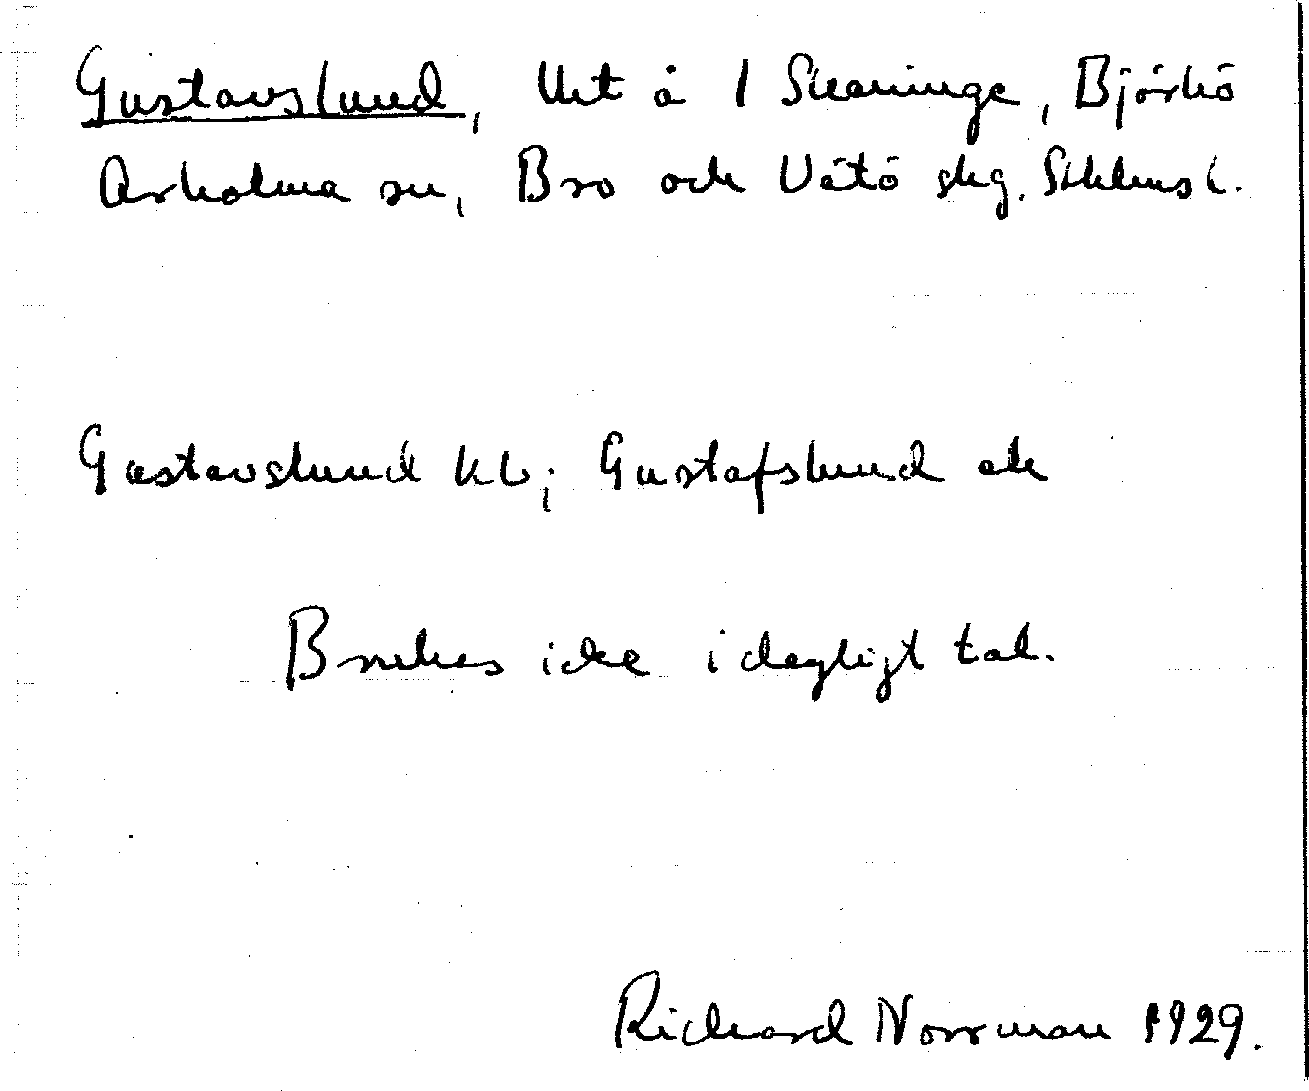 Gustavslund, Utt å 1 Skeninge, Björkö
Arholma sn, Bro och Vätö skg. Sthlms l.
Gustavslund kb; Gustafslund ek
Brukes icke i dagligt tal.
Richard Norrman 1929.